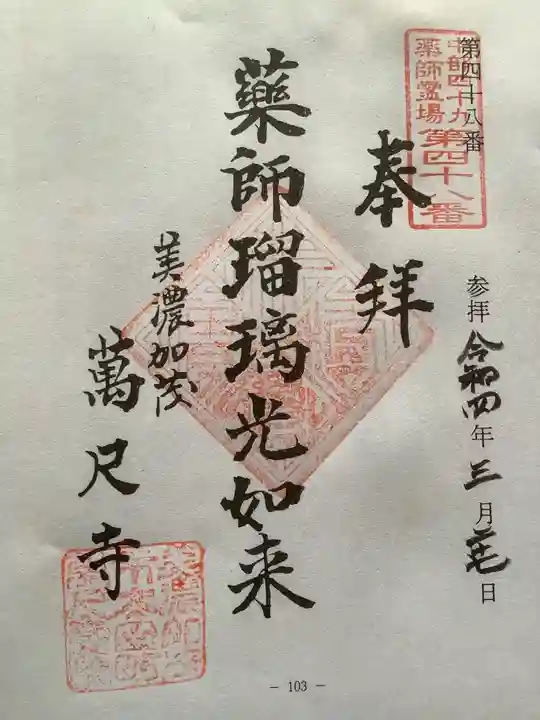 第四十八番
中部四十九
薬師霊場
第四十八番
参拝 令和四年三月 日
奉拝
藥師瑠璃光如来
美濃加茂
萬尺寺
- 103 -